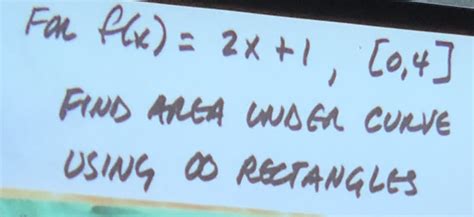 FOR f(x) = 2x+1, [0,4]
FIND AREA UNDER CURVE
USING ∞ RECTANGLES